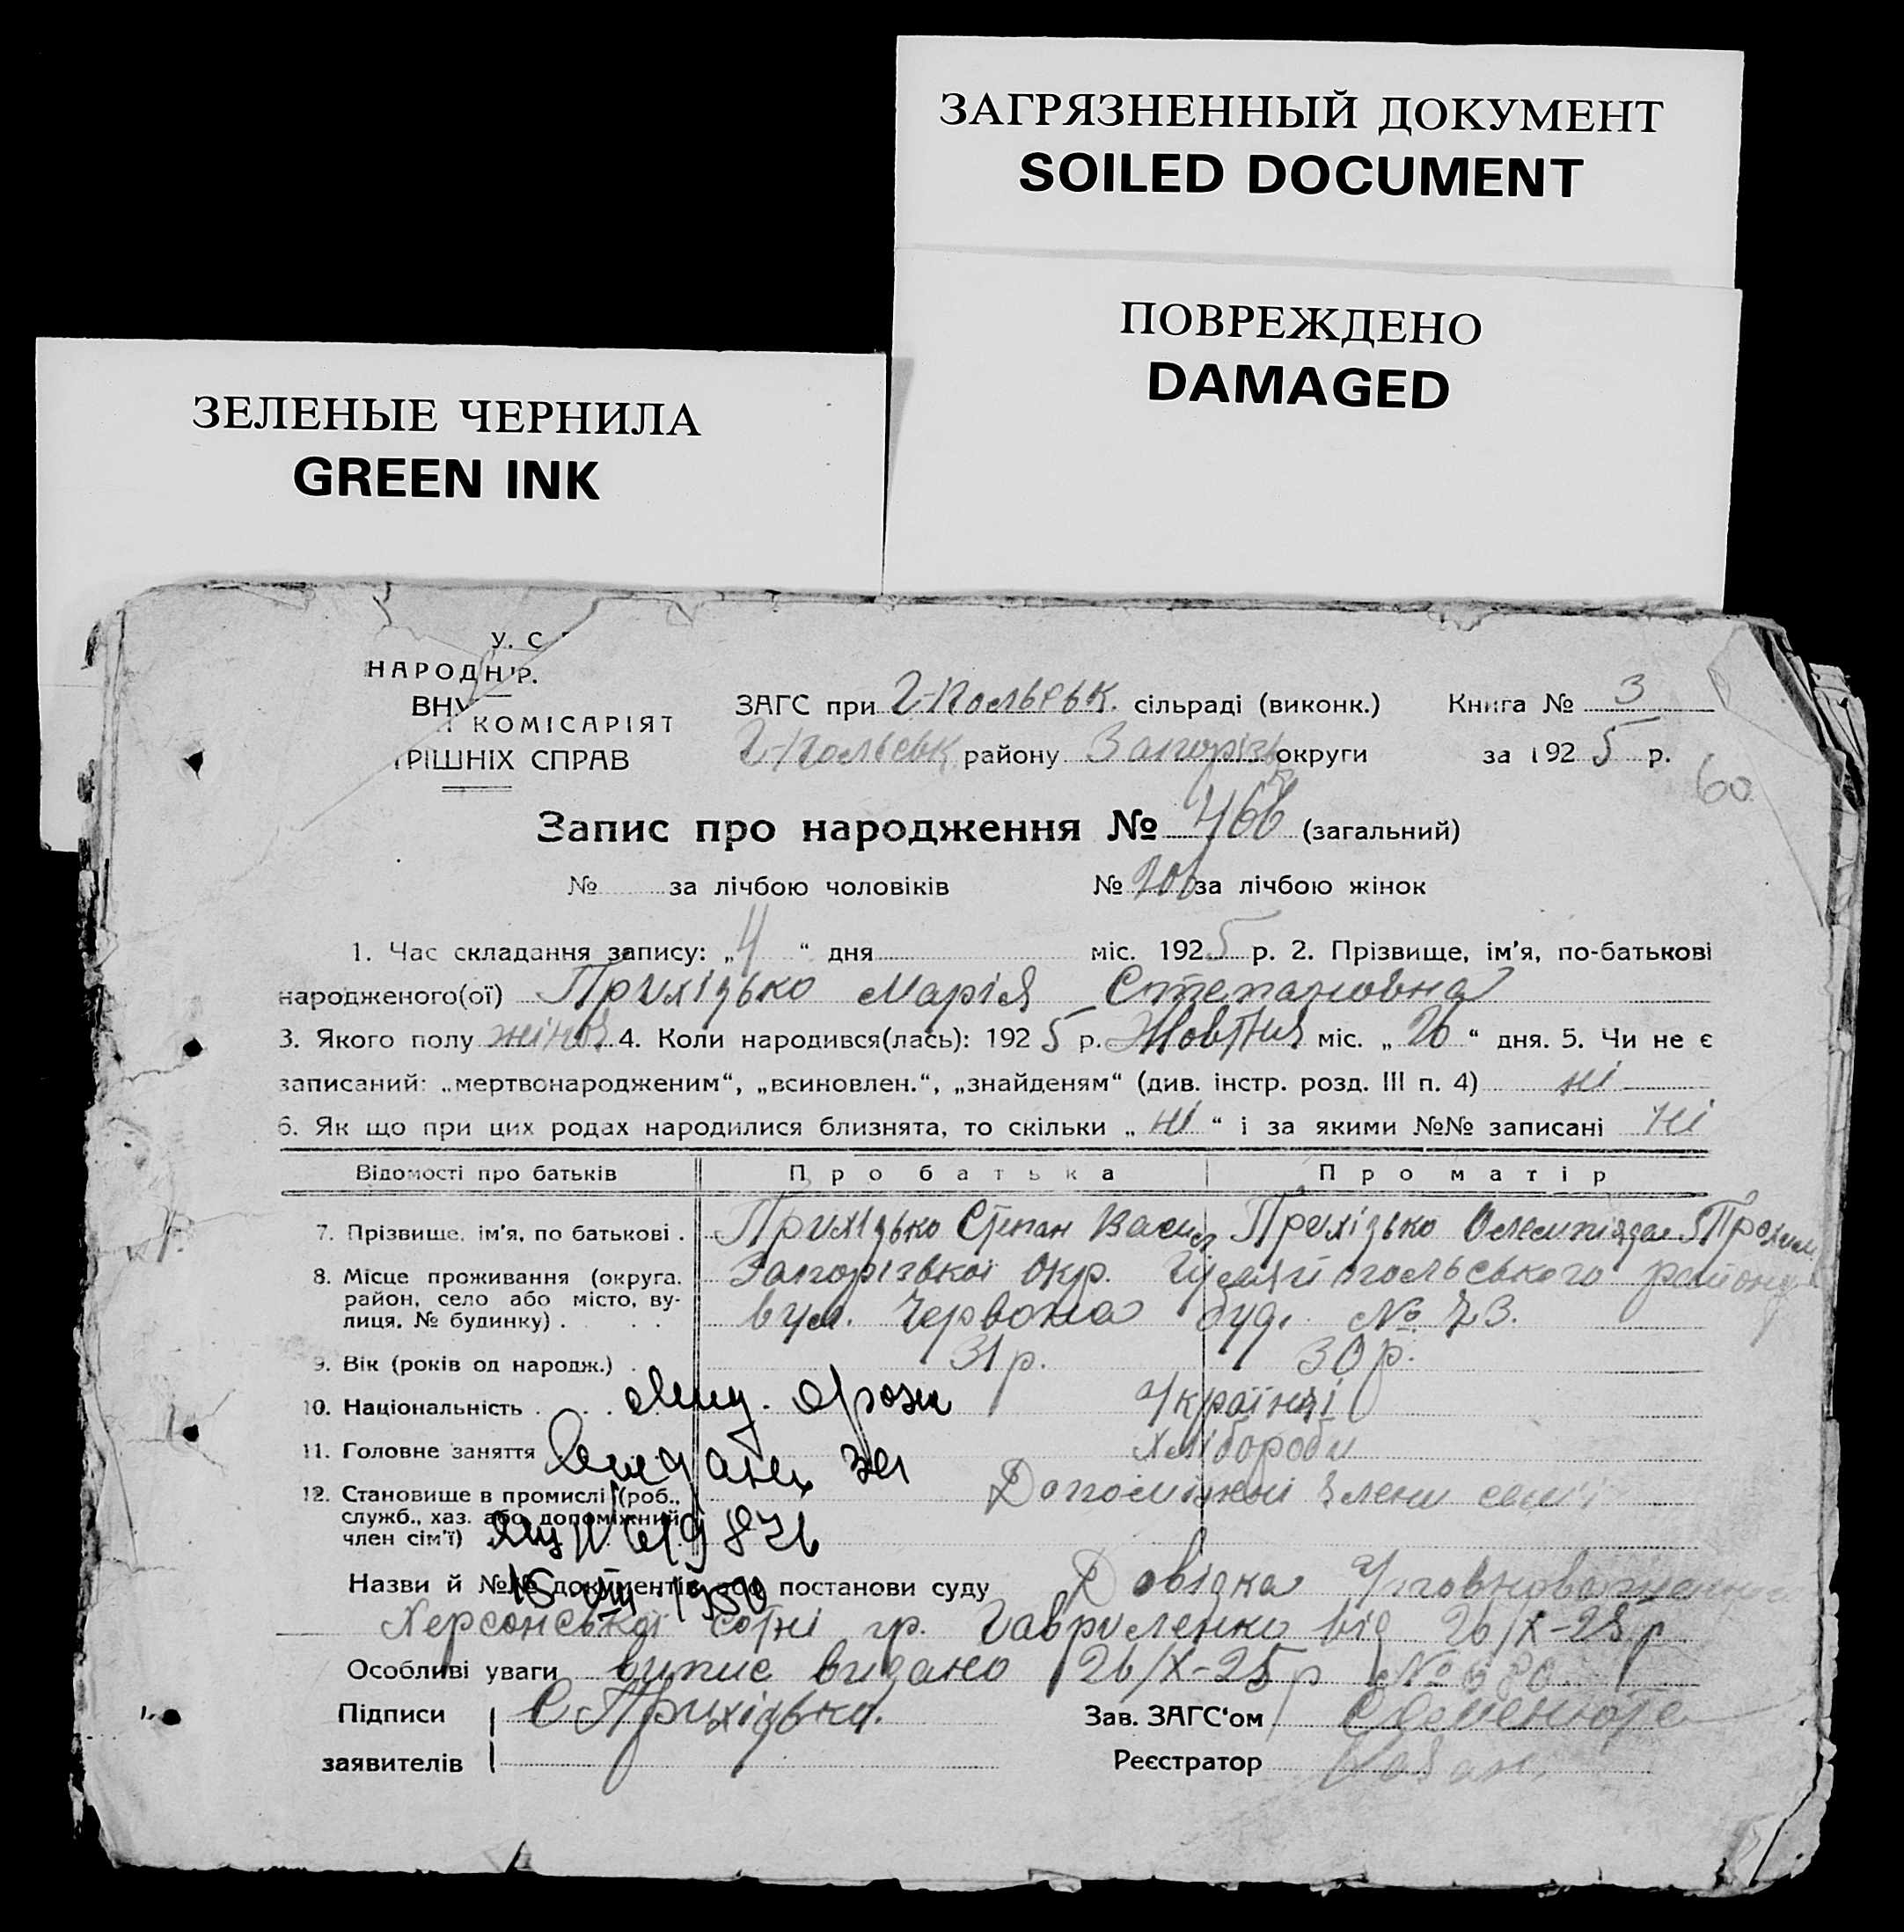 ЗАГРЯЗНЕННЫЙ ДОКУМЕНТ
SOILED DOCUMENT
ПОВРЕЖДЕНО
DAMAGED
ЗЕЛЕНЫЕ ЧЕРНИЛА
GREEN INK
У. С
НАРОДН Р.
ВНУ
КОМІСАРІЯТ
ТРІШНІХ СПРАВ
ЗАГС при Г-Польськ. сільраді (виконк.) Книга № 3
Г-Польськ району Запорізь округи за 1925 р.
60
Запис про народження № 466 (загальний)
№ за лічбою чоловіків № 206 за лічбою жінок
1. Час складання запису: „4“ дня міс. 1925 р. 2. Прізвище, ім'я, по-батькові
народженого(ої) Прихідько Марія Степановна
3. Якого полу жіноч 4. Коли народився(лась): 1925 р. Жовтня міс. „26“ дня. 5. Чи не є
записаний: „мертвонародженим“, „всиновлен.“, „знайденям“ (див. інстр. розд. III п. 4) ні
6. Як що при цих родах народилися близнята, то скільки „ні“ і за якими №№ записані ні
Відомості про батьків Про батька Про матір
7. Прізвище, ім'я, по батькові . Прихідько Степан Васил Прихідько Олемпіяда Прохим
8. Місце проживання (округа, район, село або місто, вулиця, № будинку) . Запорізької Окр. Гуляйпольського району
вул. Червона буд. № 73.
9. Вік (років од народж.) . 31 р. 30 р.
10. Національність . Українці
11. Головне заняття Хлібороби
12. Становище в промислі (роб., служб., хаз. або допоміжний член сім'ї) Допоміжні члени сем'ї
Назви й №№ документів або постанови суду Довідка Уповноваженного
Херсонської сотні гр. Гавриленко від 26/X-25 р
Особливі уваги випис видано 26/X-25 р № 680
Підписи С Прихідько. Зав. ЗАГС'ом
заявителів Реєстратор